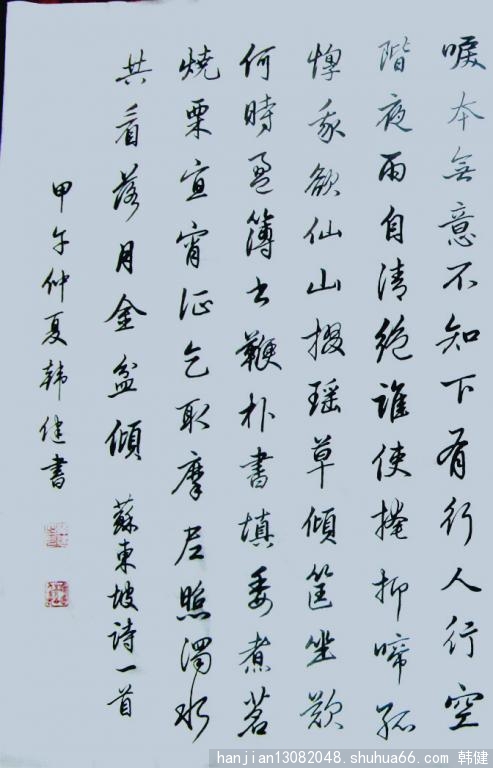 唳本無意不知下有行人行空
階夜雨自清絕誰使掩抑啼孤
惸我欲仙山掇瑶草傾筐坐歎
何時盈簿书鞭朴書填委煮茗
燒栗宣宵征乞取摩尼照濁水
共看落月金盆傾 蘇東坡詩一首
甲午仲夏韓健書
hanjian13082048.shuhua66.com 韩健